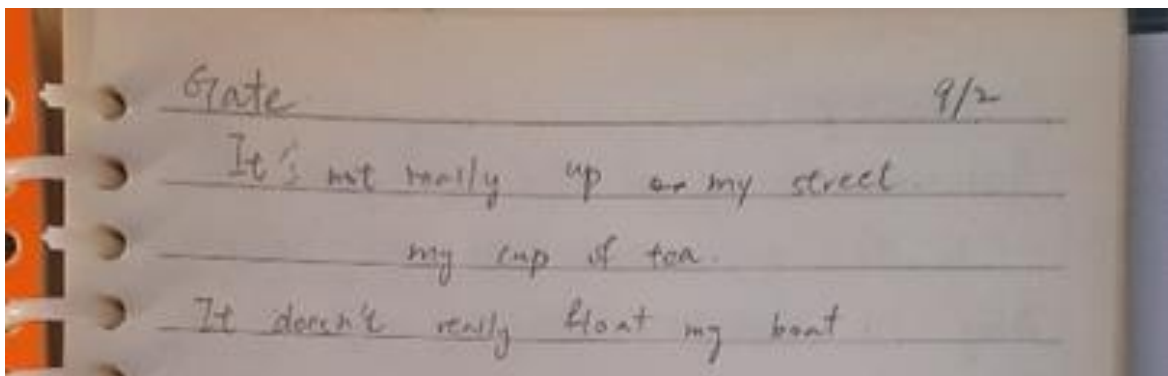 Gate 9/2
It's not really up my street.
my cup of tea.
It doesn't really float my boat.